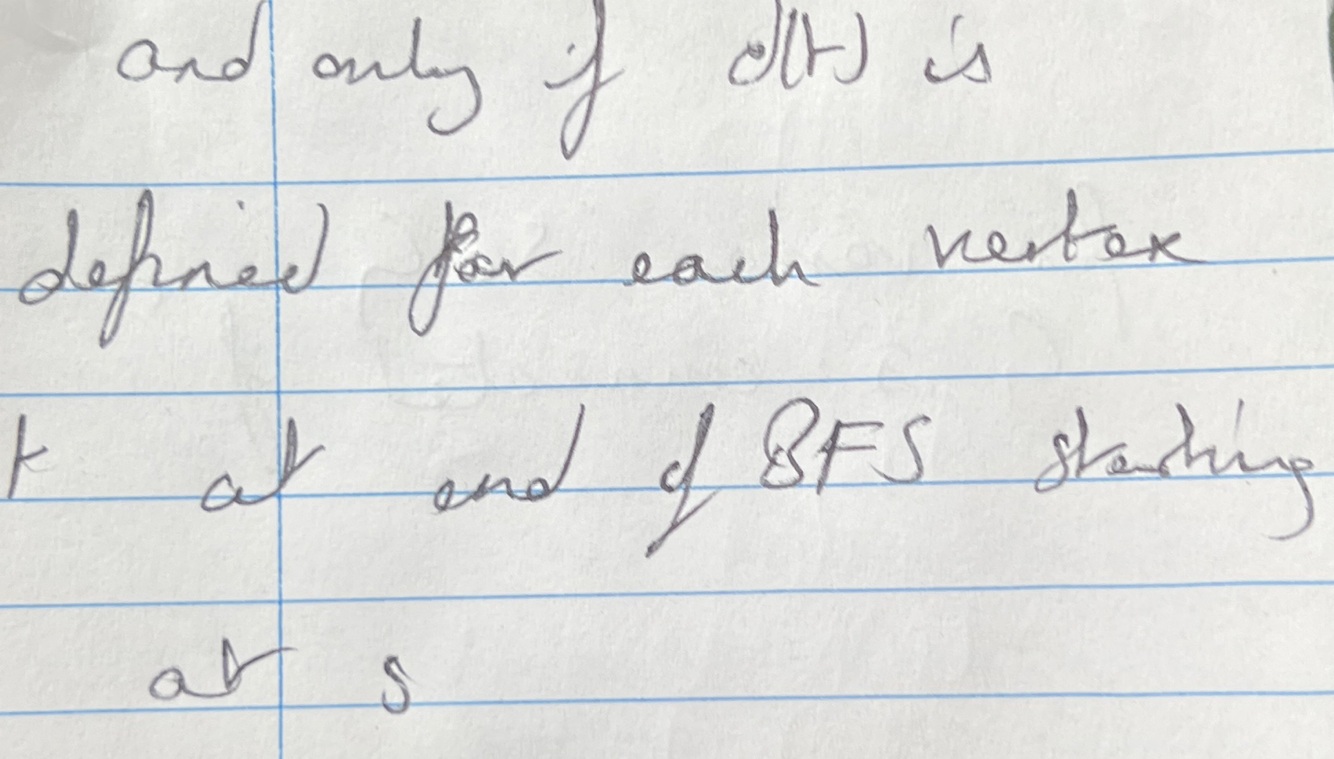 and only if d(t) is
defined for each vertex
t at end of BFS starting
at s